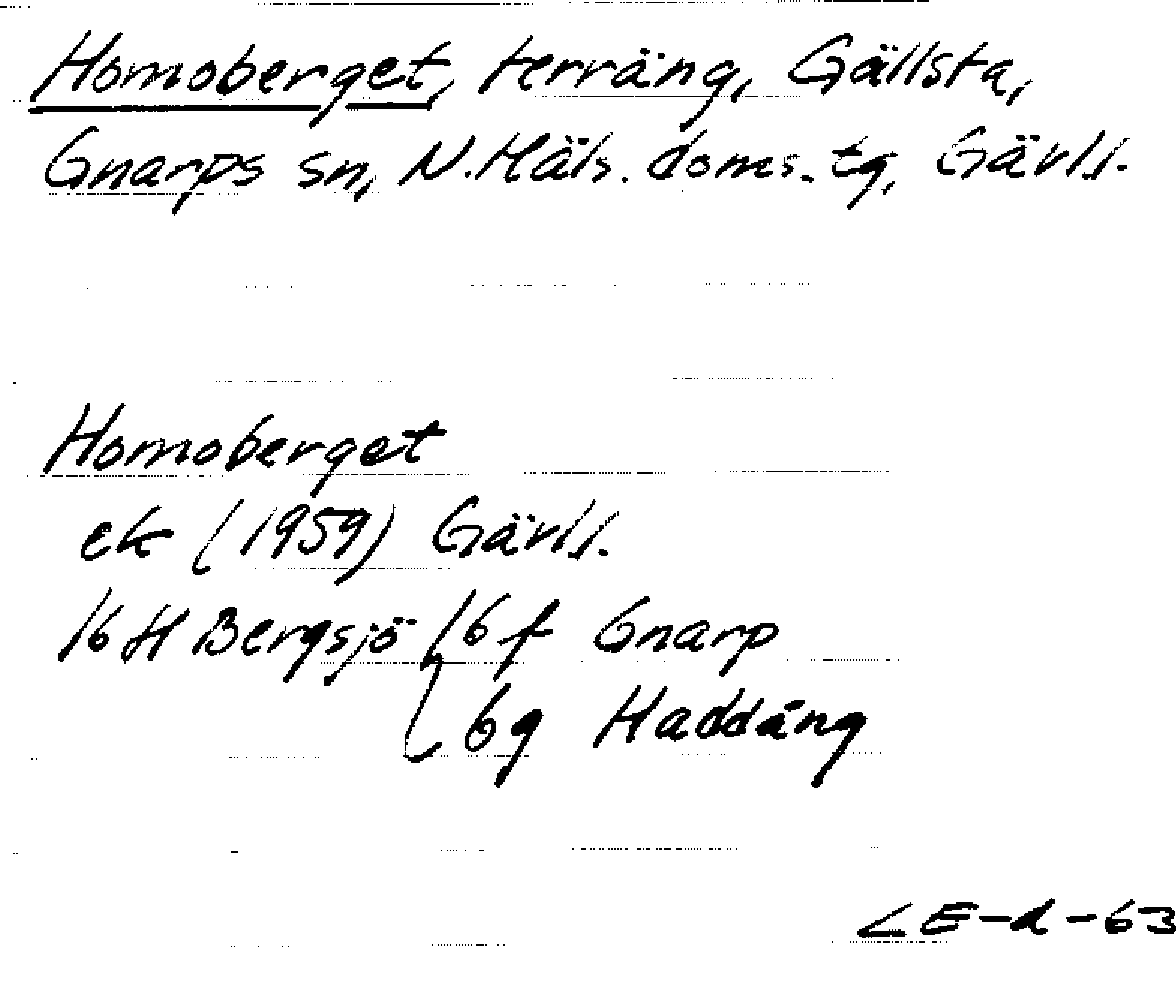 Homoberget, terräng, Gällsta,
Gnarps sn, N. Häls. doms. tg, Gävll.
Homoberget
ek (1959) Gävll.
16 H Bergsjö { 6 f Gnarp
6g Haddäng
LE-d-63